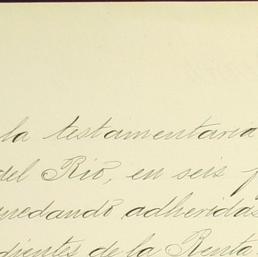 la testamentaria
del Rió, en seis
quedando adheridas
dientes de la Renta